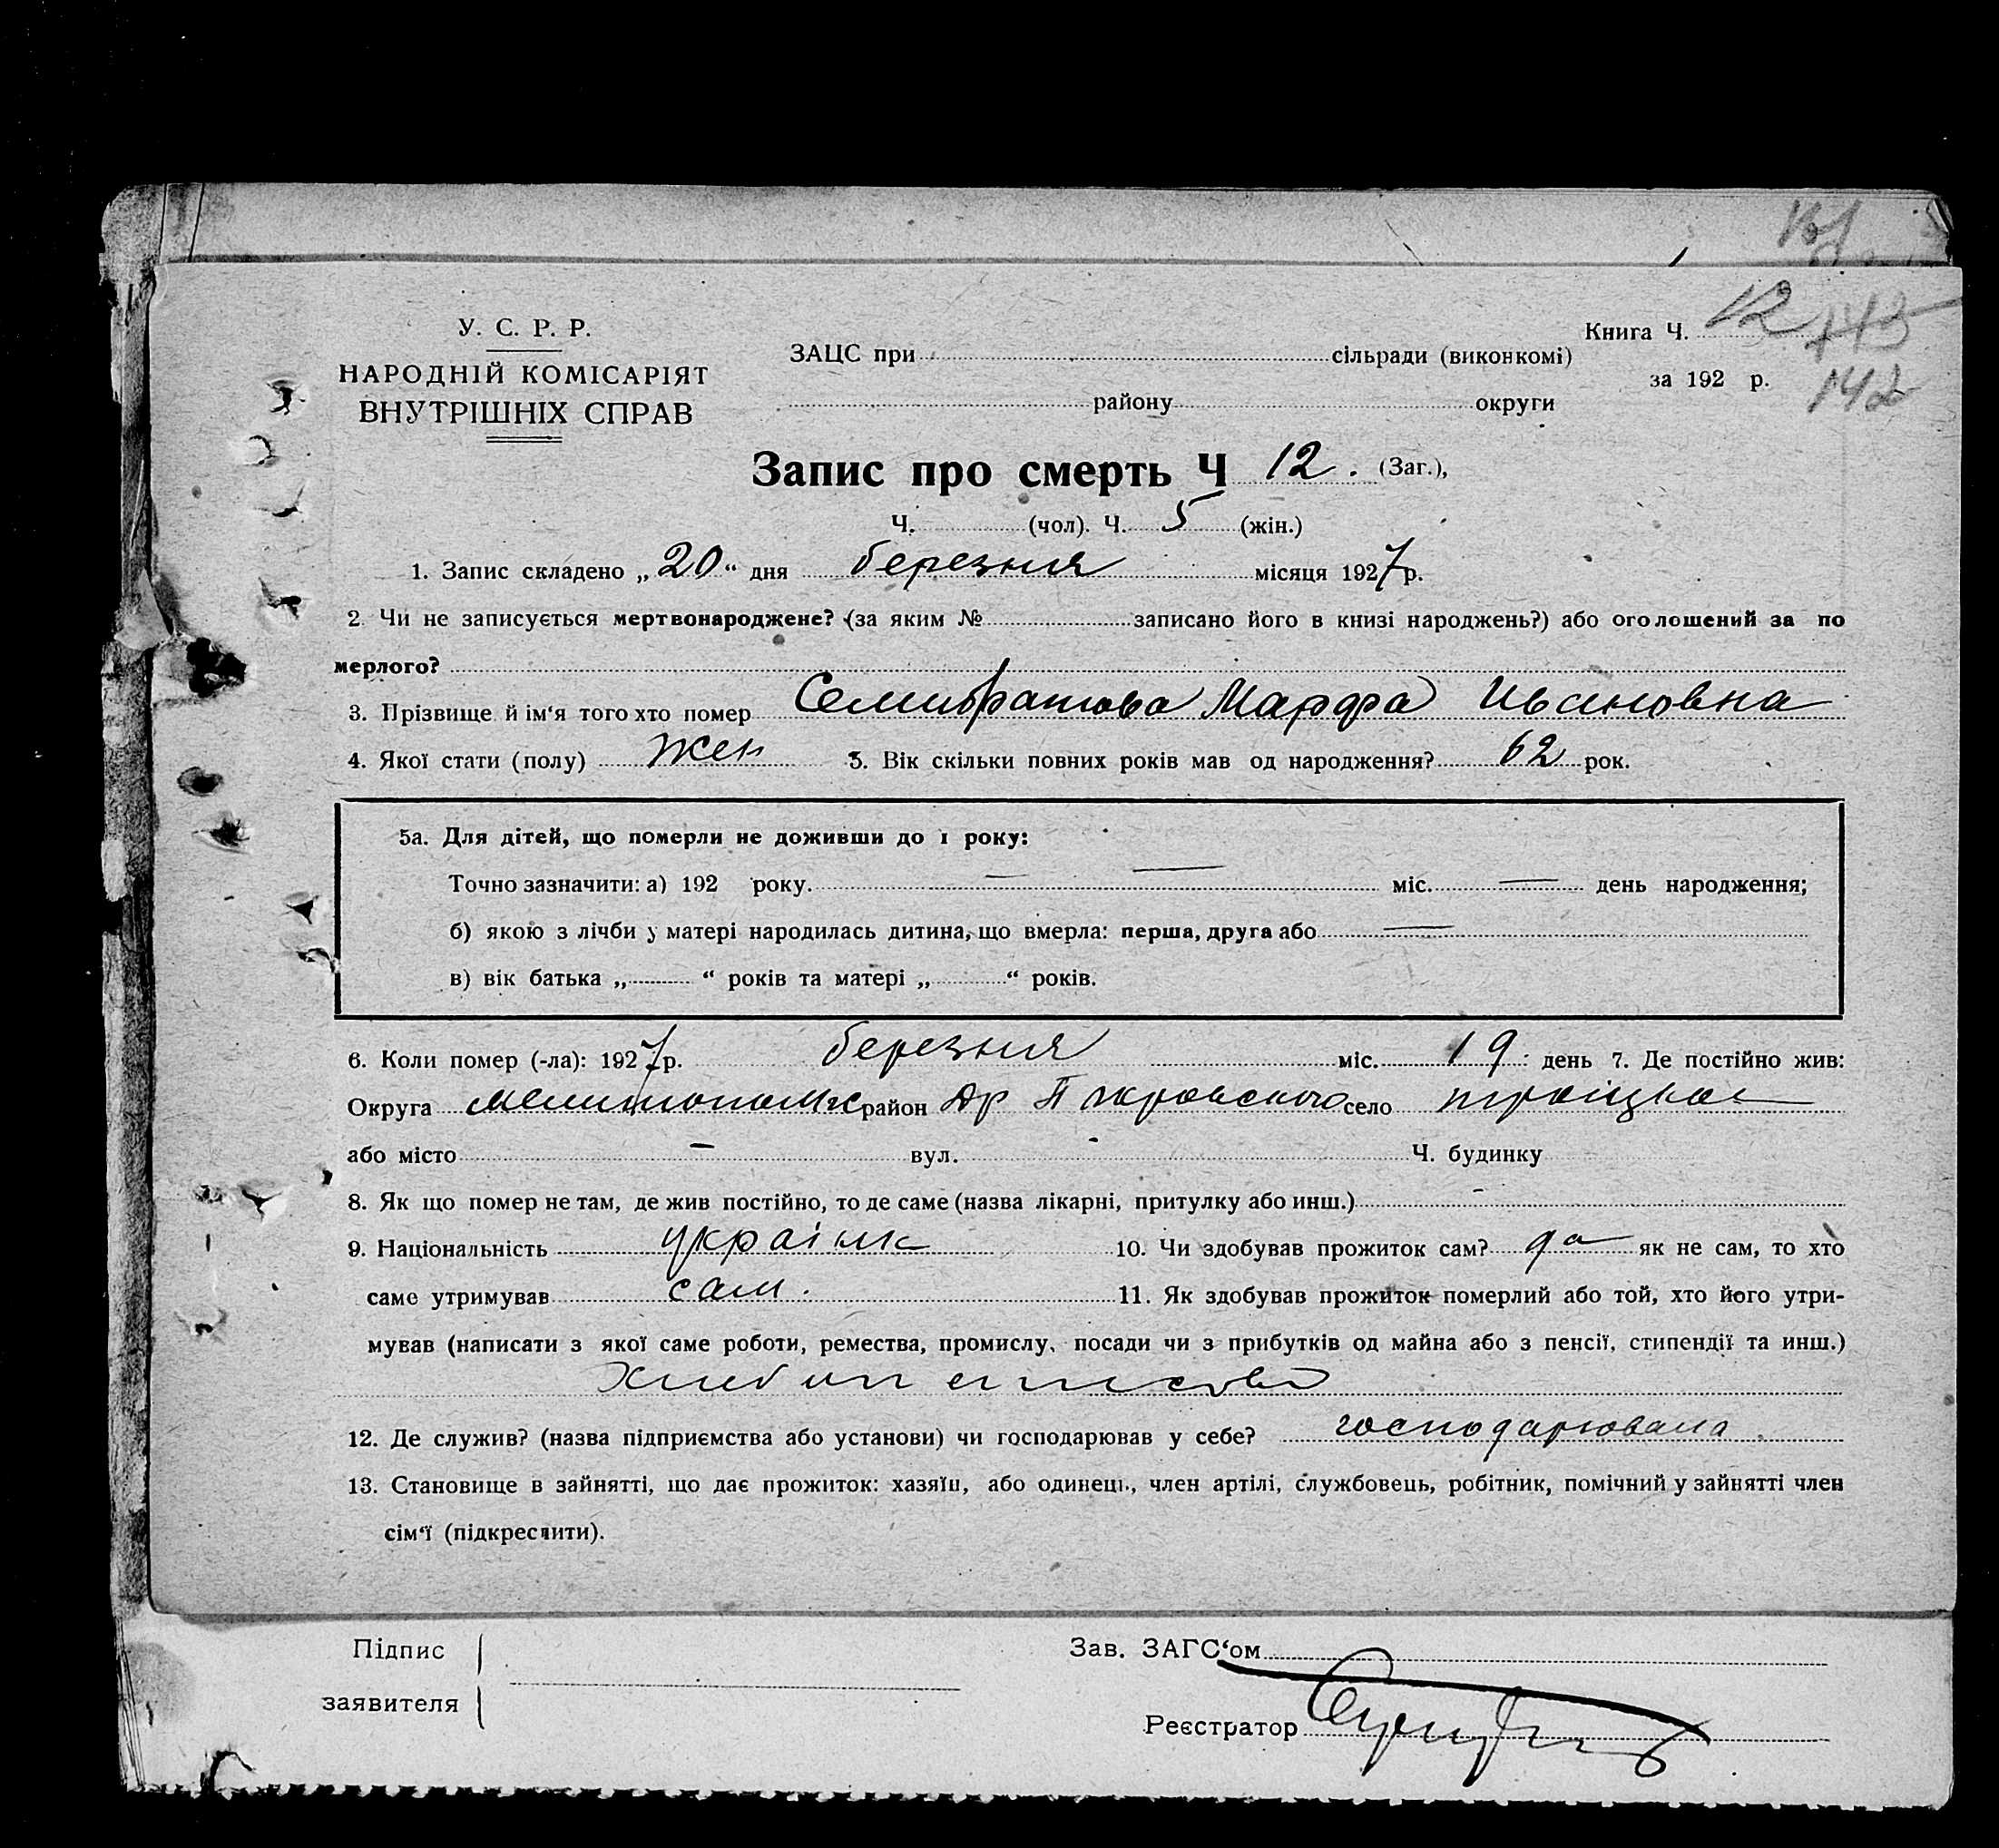 Книга Ч. 12 143
У. С. Р. Р.
ЗАЦС при сільради (виконкомі)
НАРОДНІЙ КОМІСАРІЯТ
за 192 р. 142
ВНУТРІШНІХ СПРАВ
району округи
Запис про смерть Ч 12. (Заг.),
Ч. (чол). Ч. 5 (жін.)
1. Запис складено „20“ дня березня місяця 1927р.
2. Чи не записується мертвонароджене? (за яким № записано його в книзі народжень?) або оголошений за по
мерлого?
3. Прізвище й ім‘я того хто помер Семибратова Марфа Ивановна
4. Якої стати (полу) жен 5. Вік скільки повних років мав од народження? 62 рок.
5а. Для дітей, що померли не доживши до 1 року:
Точно зазначити: а) 192 року. — — міс. — день народження;
б) якою з лічби у матері народилась дитина, що вмерла: перша, друга або —
в) вік батька „ “ років та матері „ “ років.
6. Коли помер (-ла): 1927р. березня міс. 19 день 7. Де постійно жив:
Округа район село троіцкое
або місто — вул. - Ч. будинку
8. Як що помер не там, де жив постійно, то де саме (назва лікарні, притулку або инш.) -
9. Національність 10. Чи здобував прожиток сам? да як не сам, то хто
саме утримував сам. 11. Як здобував прожиток померлий або той, хто його утри-
мував (написати з якої саме роботи, ремества, промислу, посади чи з прибутків од майна або з пенсії, стипендії та инш.)
12. Де служив? (назва підприємства або установи) чи господарював у себе? господарювала.
13. Становище в зайнятті, що дає прожиток: хазяїн, або одинець, член артілі, службовець, робітник, помічний у зайнятті член
сім‘ї (підкреслити).
Підпис
заявителя
Зав. ЗАГС‘ом
Реєстратор